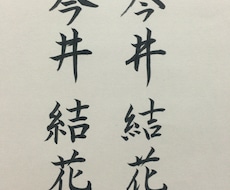 今井結花
今井結花